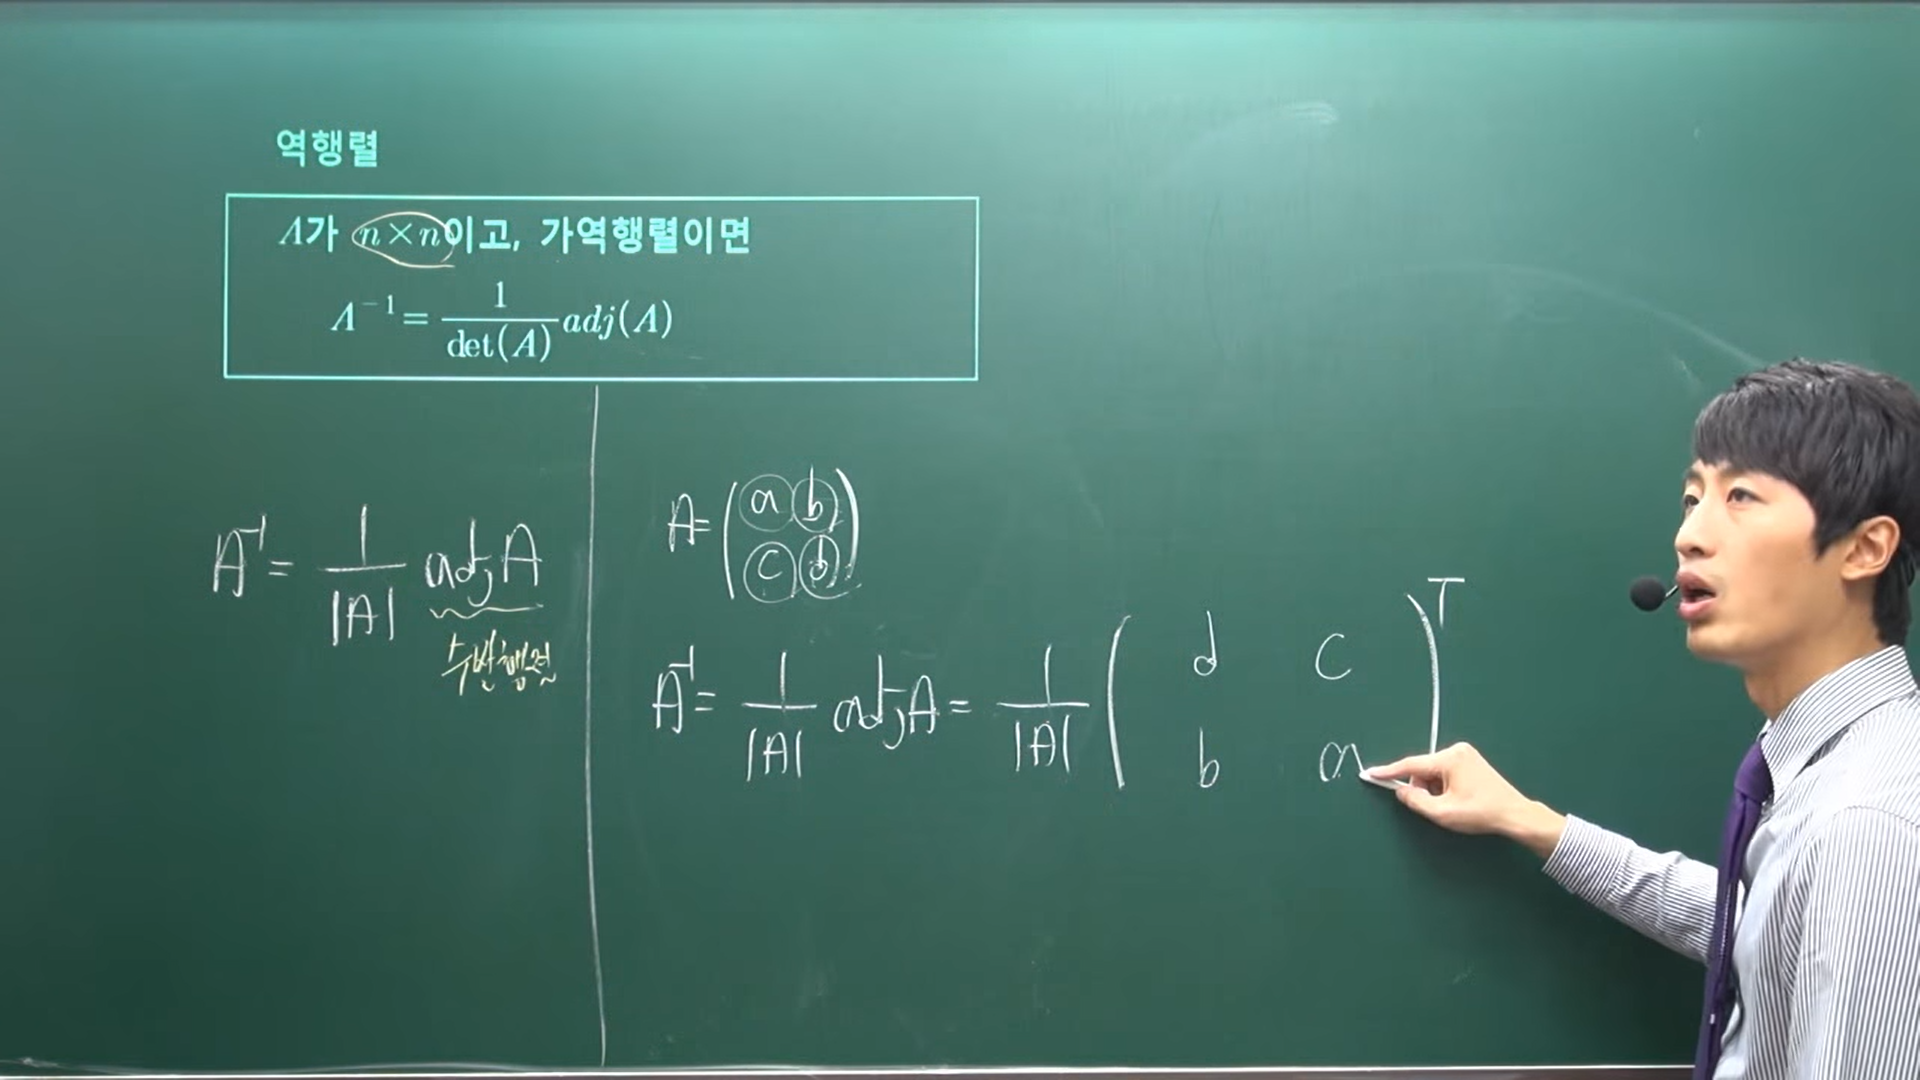 역행렬
A가 n×n이고, 가역행렬이면
A⁻¹ = 1/det(A) adj(A)
A⁻¹ = 1/|A| adjA
수반행렬
A = (a b
c d)
A⁻¹ = 1/|A| adjA = 1/|A| (d c
b a)ᵀ